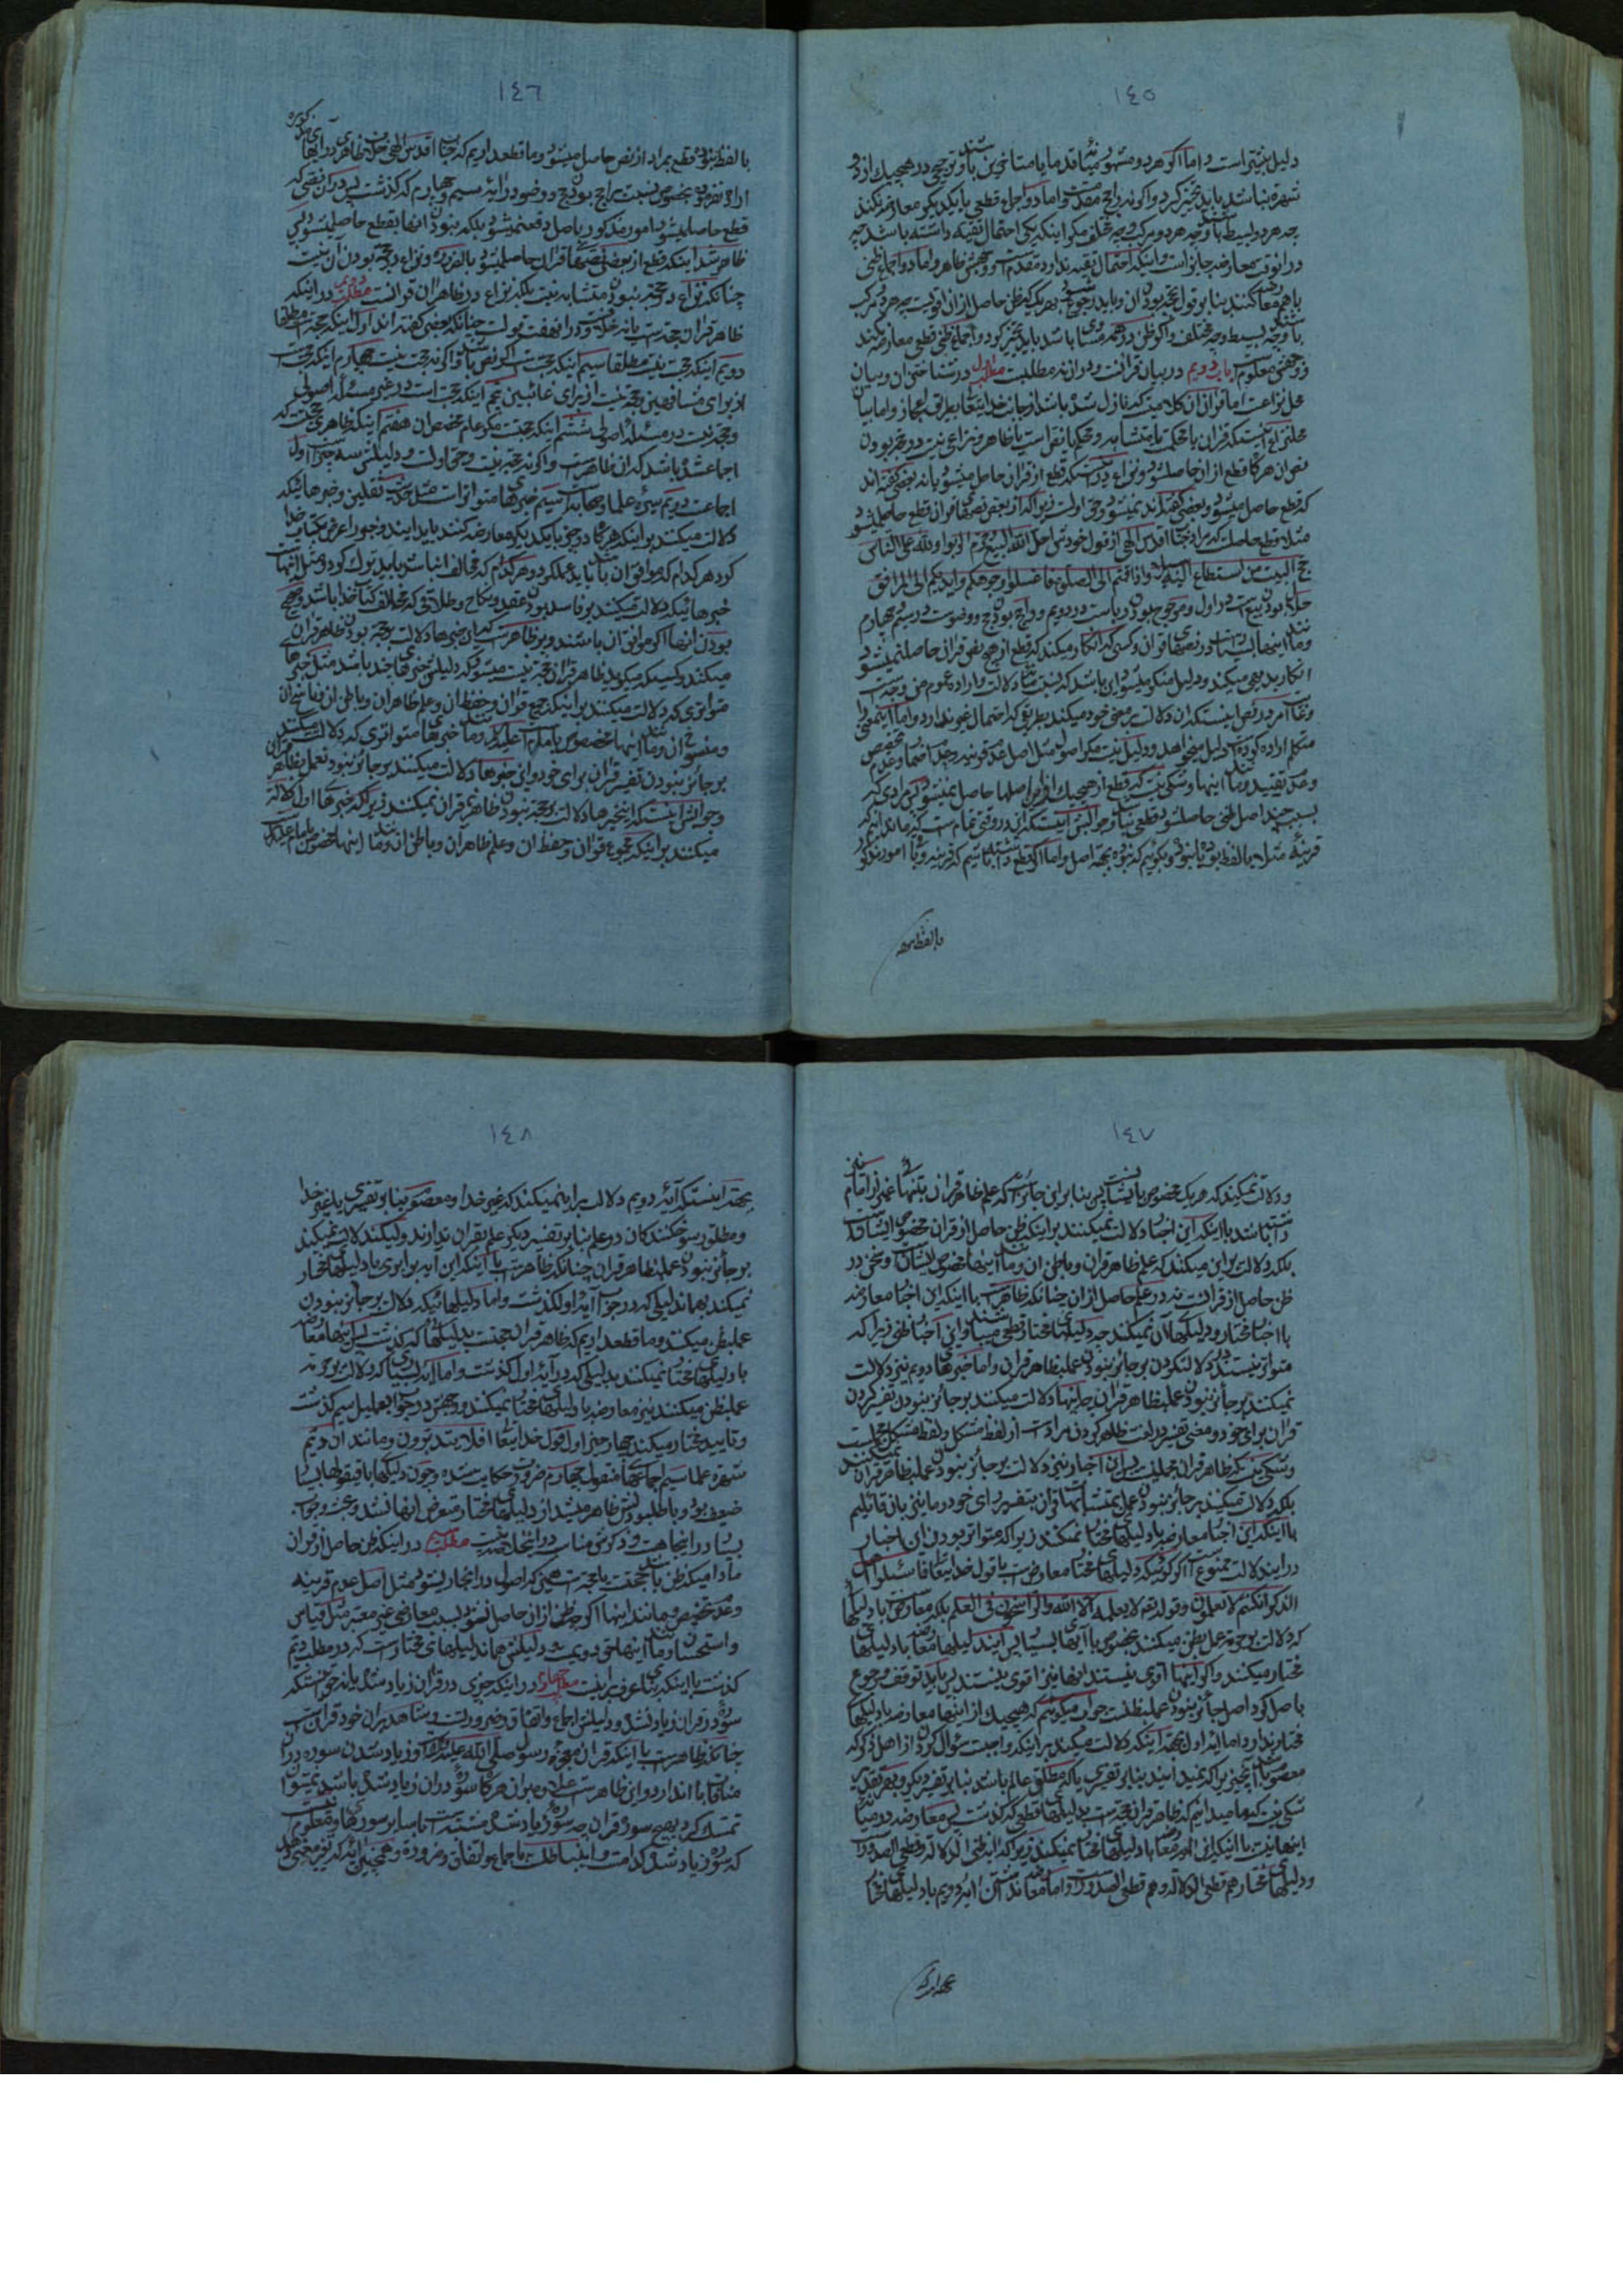 ١٤٥
دلیل بیشتر است و اما اگر هر دو مشهور قدما یا متاخرین باشند و ترجیح در هیچیک از دو
شهره نباشد باید تخییر کرد و اگر نه راجح مقدمست و اما دو اجماع قطعی با یکدیگر معارضه نمیکنند
چه هر دو بسیط باشند و چه هر دو مرکب و چه مختلف مگر اینکه یکی احتمال تقیه داشته باشد چه
درانوقت معارضه جایز است و اینکه احتمال تقیه ندارد مقدم است و وجهش ظاهر و اما دو اجماع ظنی
با هم معارضه میکنند بنا بر قول بحجة بودن ان و باید رجوع شود بهر یک که ظن حاصل از ان اقویست چه هر دو مرکب
باشند و چه بسیط و چه مختلف و اگر ظن در هر دو مساوی باشد باید تخییر کرد و اجماع ظنی قطعی معارضه نمیکند
و وجهش معلوم است باب دویم در بیان قرانست و دران نه مطلبست مطلب اول در شناختن ان و بیان
محل نزاعست اما قران ان کلامیست که نازل شده باشد از جانب خدایتعالی بطریق اعجاز و اما بیان
محل نزاع اینست که قران یا محکمست یا متشابه و محکم یا نص است یا ظاهر و نزاعی نیست در حجة بودن
نص ان هرگاه قطع از ان حاصل شود و نزاع در اینست که قطع از قران حاصل میشود یا نه بعضی گفته اند
که قطع حاصل میشود و بعضی گفته اند نمیشود و حق اولست زیرا که از بعضی نصهای قران قطع حاصل میشود
مثلا قطع حاصلست که مراد جناب اقدس الهی از قول خودش احل الله البیع و حرم الربوا و لله علی الناس
حج البیت من استطاع الیه سبیلا و اذا قمتم الی الصلوة فاغسلوا وجوهکم و ایدیکم الی المرافق
حلال بودن بیع است در اول و مرجوح بودن ربا است در دویم و راجح بودن حج و وضوست در سیم و چهارم
و مانند اینها بسیار است در نصهای قران و کسی که انکار میکند که قطع از هیچ نصی قران حاصل نمیشود
انکار بدیهی میکند و دلیل منکر
متکلم اراده کرده دلیل میخواهد و دلیل نیست مگر اصول مثل اصل عدم قرینه و عدم اضمار و عدم تخصیص
و عدم تقیید و مانند اینها و شکی نیست که قطع از هیچیک از این اصلها حاصل نمیشود پس مرادی که
بسبب چند اصل ظنی حاصل شود قطعی نیست و جوابش اینست که این در وقتی تمام است که ندانیم که
قرینه مثلا با لفظ بوده یا نبوده و بگوئیم که نبوده بجهة اصل و اما اگر قطع داشته باشیم که قرینه و باقی امور مذکور
با لفظ نبوده
١٤٦
با لفظ نبوده قطع بمراد از نص حاصل میشود و ما قطع داریم که جناب اقدس الهی خلاف ظاهری در ایهای مذکوره
اراده نفرموده بخصوص نسبت براجح بودن حج و وضو در ایه سیم و چهارم که گذشت پس در ان نصی که
قطع حاصل میشود امور مذکور باصل دفع نمیشود بلکه نبودن انها بقطع حاصل میشود پس
ظاهر شد اینکه قطع از بعضی نصهای قران حاصل میشود بالضرورة و نزاع در حجة بودن ان نیست
چنانکه نزاع در حجة نبودن متشابه نیست بلکه نزاع در ظاهر ان قرانست مطلب دویم در اینکه
ظاهر قران حجة است یا نه خلافست و در ان هفت قولست چنانکه بعضی گفته اند اول اینکه حجة است مطلقا
دویم اینکه حجت نیست مطلقا سیم اینکه حجت است اگر نص باشد و اگر نه حجت نیست چهارم اینکه حجت است
از برای مشافهین و حجة نیست از برای غائبین پنجم اینکه حجت است در غیر مسئله اصولی
و حجة نیست در مسئله اصولی ششم اینکه حجتست مگر عام مخصص ان هفتم اینکه ظاهری حجت است که
اجماعی شده باشد که ان ظاهر است و اگر نه حجة نیست و حق اولست و دلیلش سه چیز است اول
اجماعست دویم سیره علما و صحابه است سیم خبرهای متواتر است مثل حدیث ثقلین و خبرهائیکه
دلالت میکنند بر اینکه هرگاه دو خبر با یکدیگر معارضه کنند باید ایندو خبر را عرض بکتاب خدا
کرد هر کدام که موافق ان باشد باید عمل کرد و هر کدام که مخالف انست باید ترک کرد و مثل اینهاست
خبرهائیکه دلالت میکنند بر فاسد بودن عقد و نکاح و طلاقی که مخالف کتاب خدا باشد و صحیح
بودن انها اگر موافق ان باشند و بر ظاهر است که این خبرها دلالت بر حجة بودن ظاهر قران
میکنند و کسیکه میگوید ظاهر قران حجة نیست متمسک بدلیلی چند باشد مثل خبرها
متواتری که دلالت میکنند بر اینکه جمع قران و حفظ ان و علم ظاهر ان و باطن ان و ناسخ ان
و منسوخ ان و مانند اینها مخصوص بامام است علیه السلام و مانند خبرهای متواتری که دلالت میکنند
بر جائز نبودن تفسیر قران برای خود و این خبرها دلالت میکنند بر جائز نبودن عمل بظاهر قران
و جوابش اینستکه این خبرها دلالت بر حجة نبودن ظاهر قران نمیکنند زیرا که خبرها اول دلالة
میکنند بر اینکه مجموع قران و حفظ ان و علم ظاهر ان و باطن ان و مانند اینها مخصوص بامام علیه السلام
١٤٧
و دلالت نمیکند که هر یک مخصوص بایشانست پس بنا بر این جائز است که علم ظاهر قران بتنهائی غیر از امام نیز
داشته باشد با اینکه این اخبار دلالت نمیکنند بر اینکه ظن حاصل از قران مخصوص ایشانست
بلکه دلالت بر این میکند که علم ظاهر قران و باطن ان و مانند اینها مخصوص ایشانست و سخن در
ظن حاصل از قرانست نه در علم حاصل از ان چنانکه ظاهر است با اینکه این اخبار معارضه
با اخبار مختار و دلیلهای ان نمیکند چه دلیلهای مختار قطعی میباشند و این اخبار ظنی زیرا که
متواتر نیستند در دلالت کردن بر جائز نبودن عمل بظاهر قران و اما خبرهای دویم نیز دلالت
نمیکنند بر جائز نبودن عمل بظاهر قران چه اینها دلالت میکنند بر جائز نبودن تفسیر کردن
قران برای خود و معنی تفسیر در لغت ظاهر کردن مراد است از لفظ مشکل و لفظ مشکل مجملست
و شکی نیست که ظاهر قران مجمل نیست پس این اخبار نیز دلالت بر جائز نبودن عمل بظاهر قران نمیکنند
بلکه دلالت میکنند بر جائز نبودن عمل بمتشابهات قران بتفسیر رای خود و ما نیز بان قائلیم
با اینکه این اخبار معارضه با دلیلهای مختار نمیکند زیرا که متواتر بودن این اخبار
در ایندلالت ممنوع است اگر کوئی که دلیلهای مختار معارض است با قول خدایتعالی فاسئلوا اهل
الذکر ان کنتم لا تعلمون و قوله تعالی لا یعلمه الا الله و الراسخون فی العلم بلکه معارض با دلیلهای
که دلالت بر حرمة عمل بظن میکند بخصوص با آیهای بسیار پس ایندلیلها معارضه با دلیلهای
مختار میکند و اگر اینها اقوی نیستند انها نیز اقوی نیستند پس باید توقف و رجوع
باصل کرد و اصل جائز نبودن عمل بظنست جواب میگوئیم که هیچیک از اینها معارضه با دلیلهای
مختار ندارد اما ایه اول بجهة اینکه دلالت میکند بر اینکه واجبست سؤال کردن از اهل ذکر که
شکی نیست که ما میدانیم که ظاهر قران حجة است بدلیلهای قطعی که گذشت پس معارضه در میان
اینها نیست با اینکه این ایه معارضه با دلیلهای مختار نمیکند زیرا که ایه ظنی الدلالة و قطعی الصدور است
و دلیلهای مختار هم قطعی الدلالة و هم قطعی الصدور است و اما معارضه نداشتن ایه دویم با دلیلهای مختار
بجهة اینکه
١٤٨
بجهة اینستکه آیه دویم دلالت بر این نمیکند که غیر خدا و معصوم بنا بر تفسیری یا غیر خدا
و مطلق رسوخ کنندکان در علم بنا بر تفسیر دیگر علم بقران ندارند ولیکن دلالت نمیکند
بر جائز نبودن عمل بظاهر قران چنانکه ظاهر است با اینکه این ایه برابری با دلیلهای مختار
نمیکند بهمان دلیلی که در جواب آیه اول گذشت و اما دلیلهائیکه دلالت بر جائز نبودن
عمل بظن میکند و ما قطع داریم که ظاهر قران حجتست بدلیلهائی که گذشت پس اینها معارضه
با دلیلهای مختار نمیکنند بدلیلی که در آیه اول گذشت و اما ایهای بسیار که دلالت بر حرمة
عمل بظن میکنند نیز معارضه با دلیلهای مختار نمیکنند و وجهش در جواب دلیل سیم گذشت
و تایید مختار میکند چهار چیز اول قول خدایتعالی افلا یتدبرون و مانند ان دویم
شهره علما سیم اجماعهای منقوله چهارم ضرورت حکایت شده و چون دلیلهای باقی قولها بسیار
ضعیف بود و باطل بودنش ظاهر میشد از دلیلهای مختار متعرض انها نشد و بحث و جواب
بسیار در اینجا هست و ذکرش مناسب در اینجا نیست مطلب سیم در اینکه ظن حاصل از قران
مادامیکه ظن باشد حجتست یا حجة است همین که اصول در انجا جاری شود مثل اصل عدم قرینه
و عدم تخصیص و مانند اینها اگر چه ظنی از ان حاصل نشود بسبب معارضی غیر معتبر مثل قیاس
و استحسان و مانند اینها حق دویمست و دلیلش همان دلیلهای مختار است که در مطلب دویم
گذشت با اینکه بنای عرف بر اینست مطلب چهارم در اینکه چیزی در قران زیاد شده یا نه حق اینستکه
سوره در قران زیاد نشده و دلیلش اجماع و اتفاق و ضرورتست و شاهد بر ان خود قرانست
چنانکه ظاهر است با اینکه قران معجزه رسول صلی الله علیه و آله است و زیاد شدن سوره در ان
منافات با ان دارد و این ظاهر است علاوه بر ان هرگاه سوره در ان زیاد شده باشد نمیتوان
تمسک کرد بهیچ سوره قران چه سوره زیاد شده مشتبه است با سایر سورهای ان و معلوم نیست
که سوره زیاد شده کدامست و این باطلست باجماع و اتفاق و ضرورة و همچنین